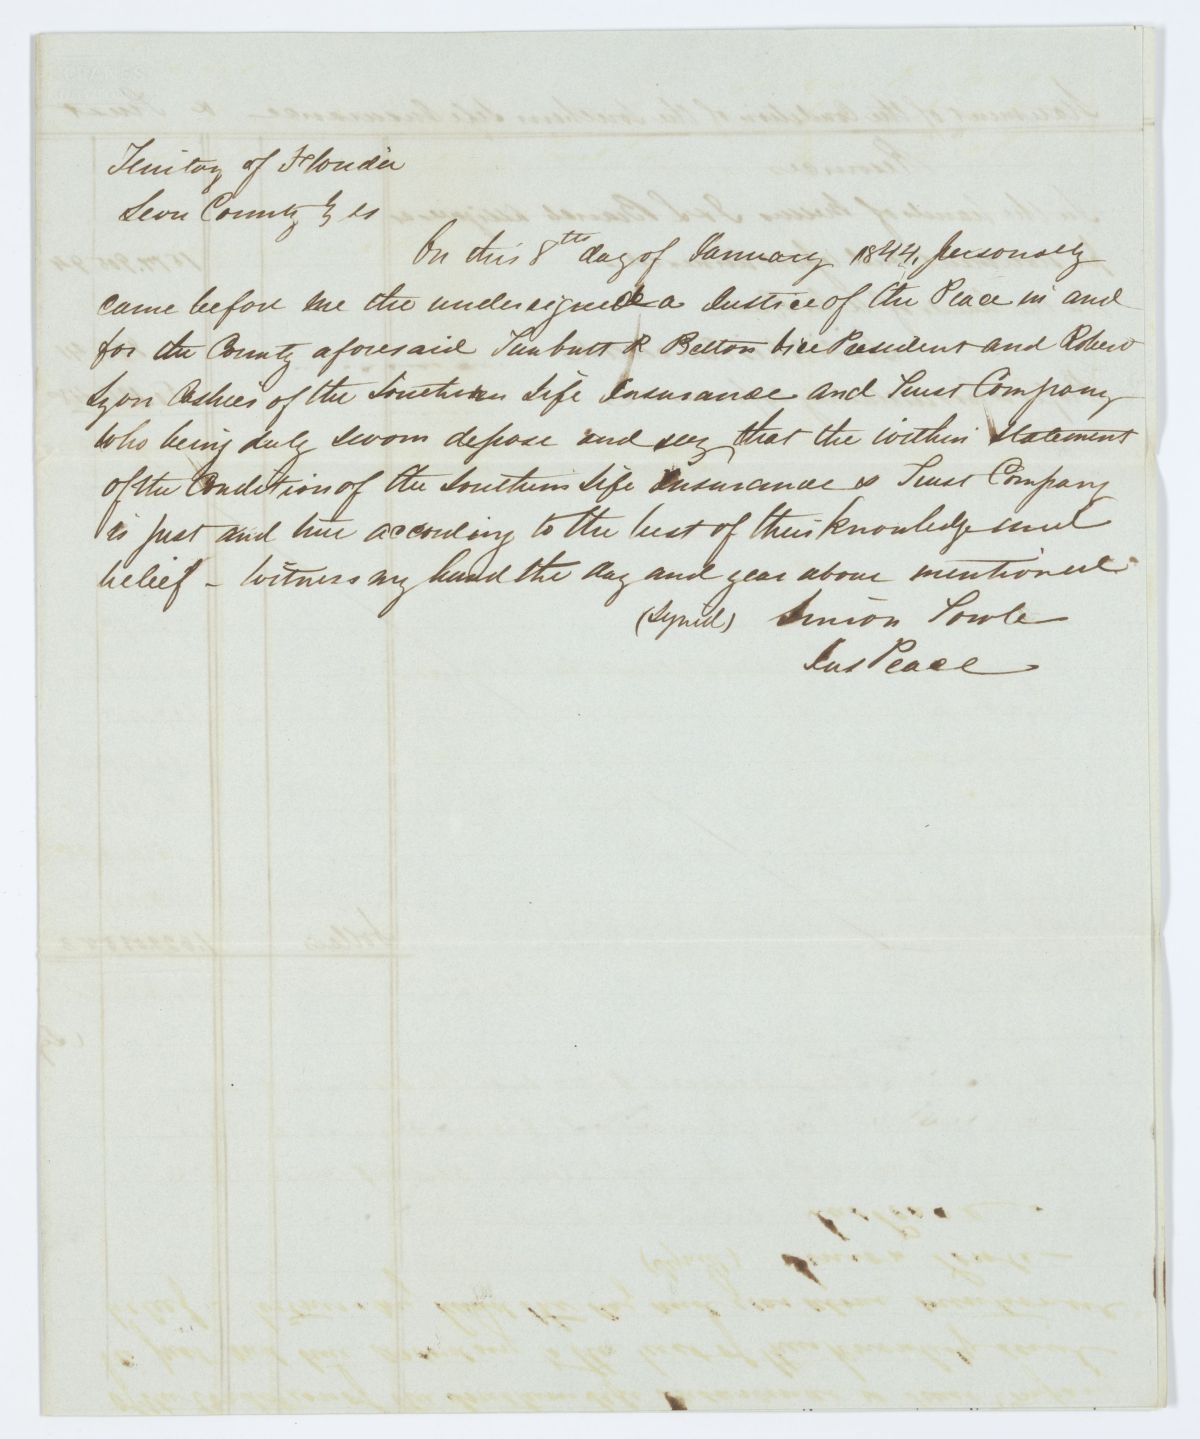 Territory of Florida
Leon County } ss
On this 8th day of January 1844, personally
came before me the undersigned a Justice of the Peace in and
for the County aforesaid Turbutt R Betton Vice President and Robert
Lyon Cashier of the Southern Life Insurance and Trust Company
who being duly sworn depose and say that the within statement
of the Condition of the Southern Life Insurance & Trust Company
is just and true according to the best of their knowledge and
belief – Witness my hand the day and year above mentioned
(Signed) Simon Towle
Jus Peace